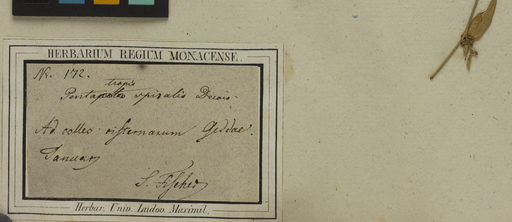 HERBARIUM REGIUM MONACENSE.
Nr. 172.
tropis
Penta spiralis Decais.
Ad colles cisternarum Geddae.
Januar
S. Fischer
Herbar. Univ. Ludov. Maximil.